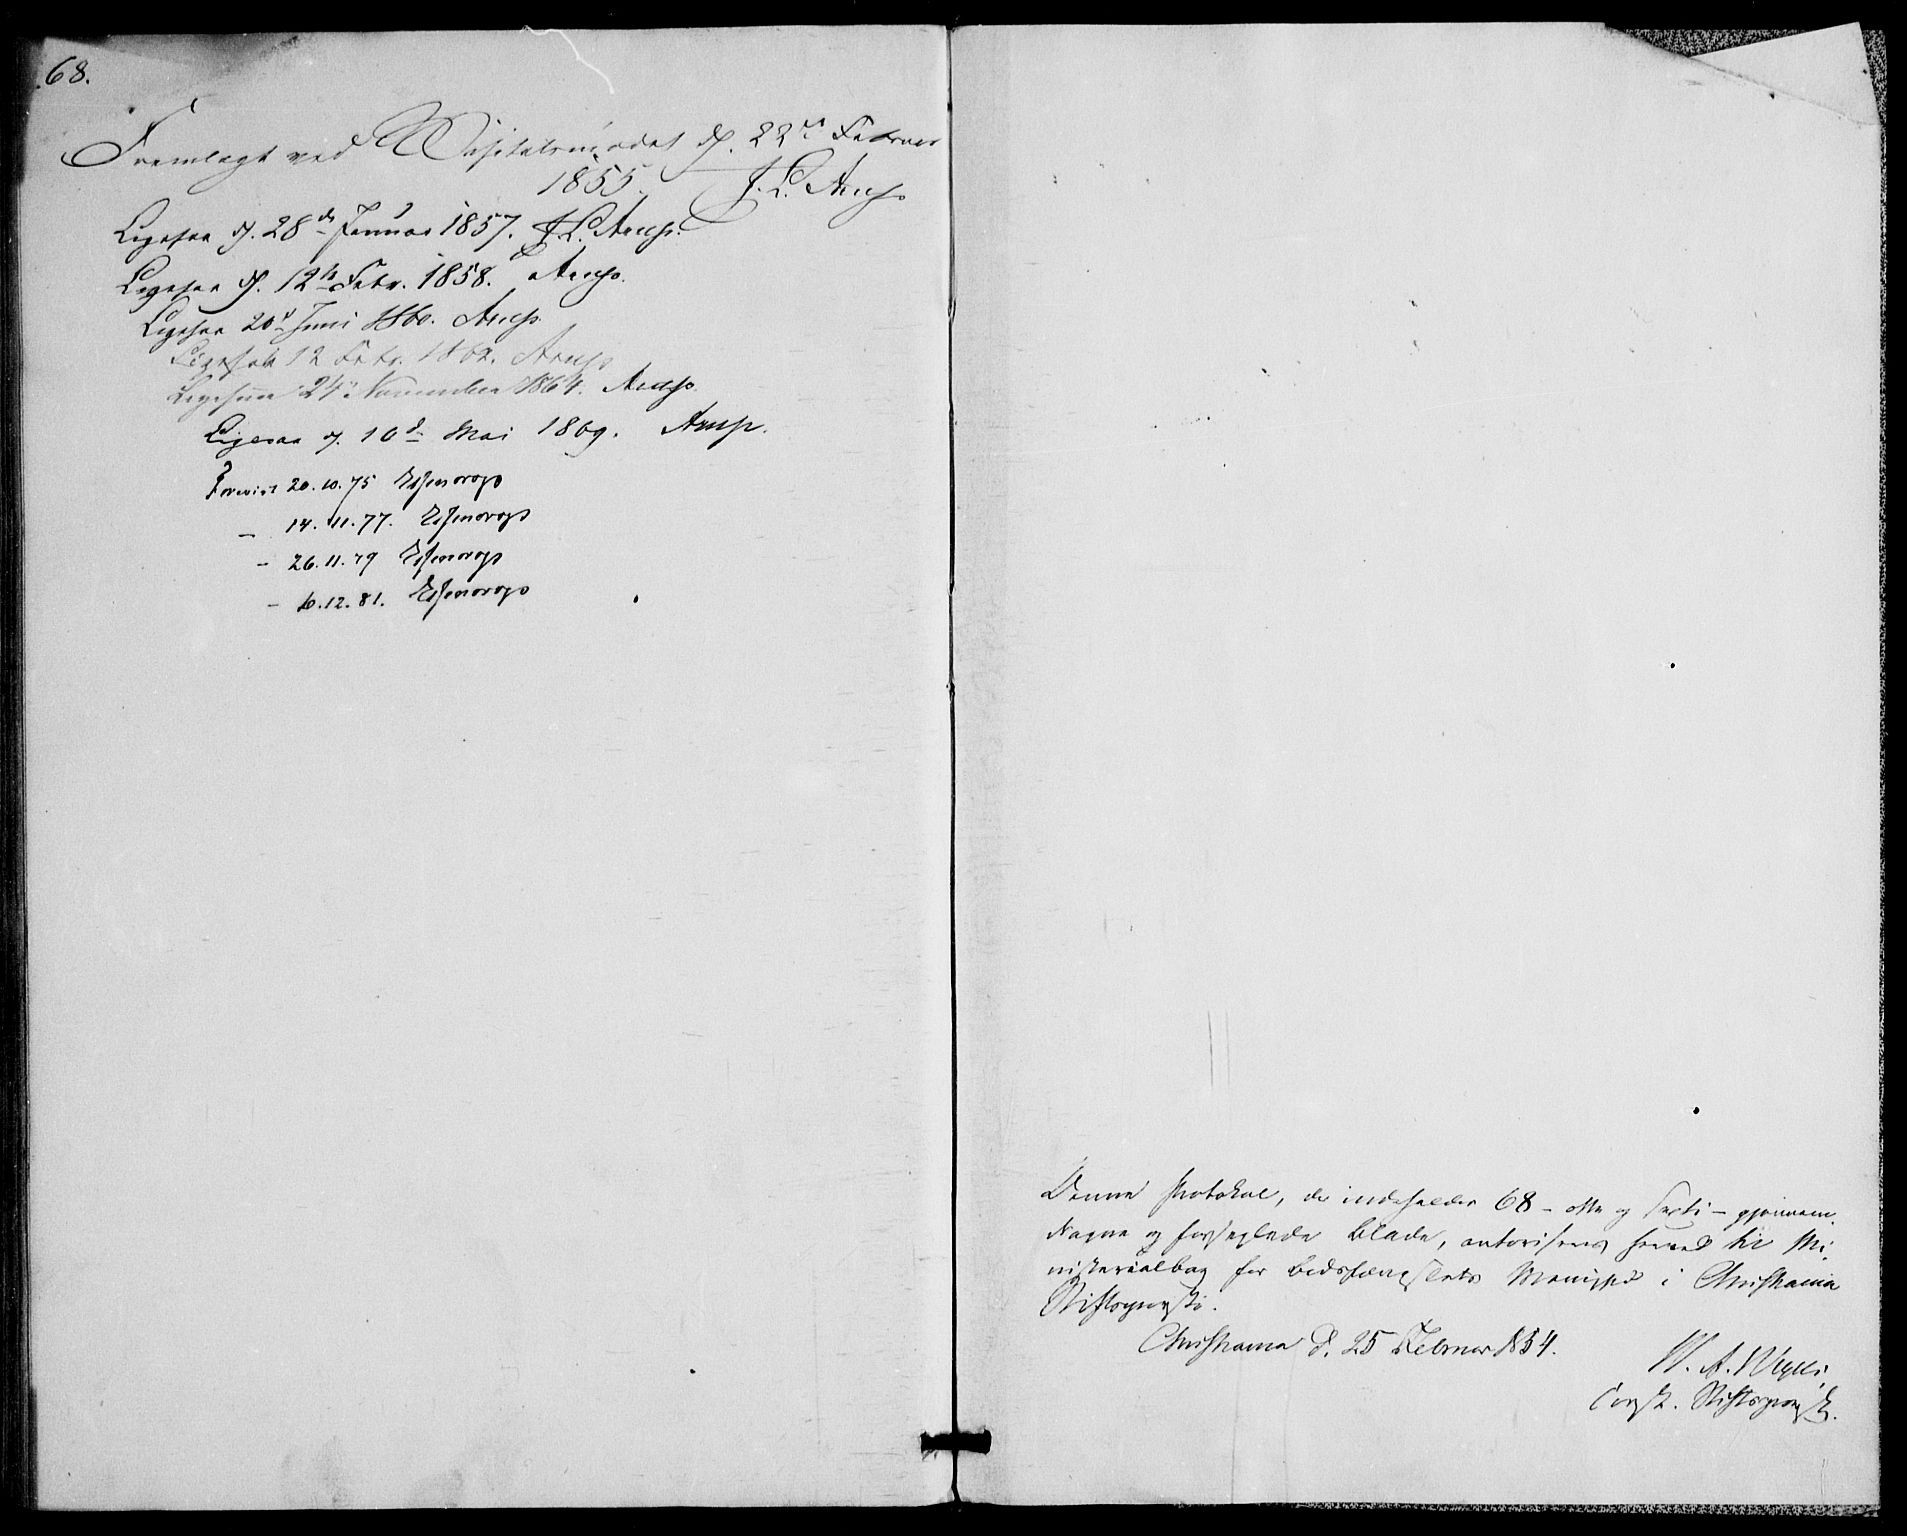 68.
Fremlagt ved Visitatsmødet d. 22de Februar
1855. J. L. Arup
Ligesaa d. 28de Januar 1857. J. L. Arup.
Ligesaa d. 12te Febr. 1858. Arup.
Ligesaa 20d Juni 1860. Arup.
Ligesaa 12 Febr. 1862. Arup
Ligesaa 24 November 1864. Arup.
Ligesaa d. 10d Mai 1869. Arup.
Forevist 20.10.75 Essendrop
- 14.11.77. Essendrop
- 26.11.79 Essendrop
- 6.12.81. Essendrop
Denne Protokol, der indeholder 68 - otte og Sexti - gjennem-
dragne og forseglede Blade, autoriseres herved til Mi-
nisterialbog for Bodsfængslets Menighed i Christiania
Stiftsprovsti.
Christiania d. 25 Februar 1854.
W. A. Wexels
const. Stiftsprovst.